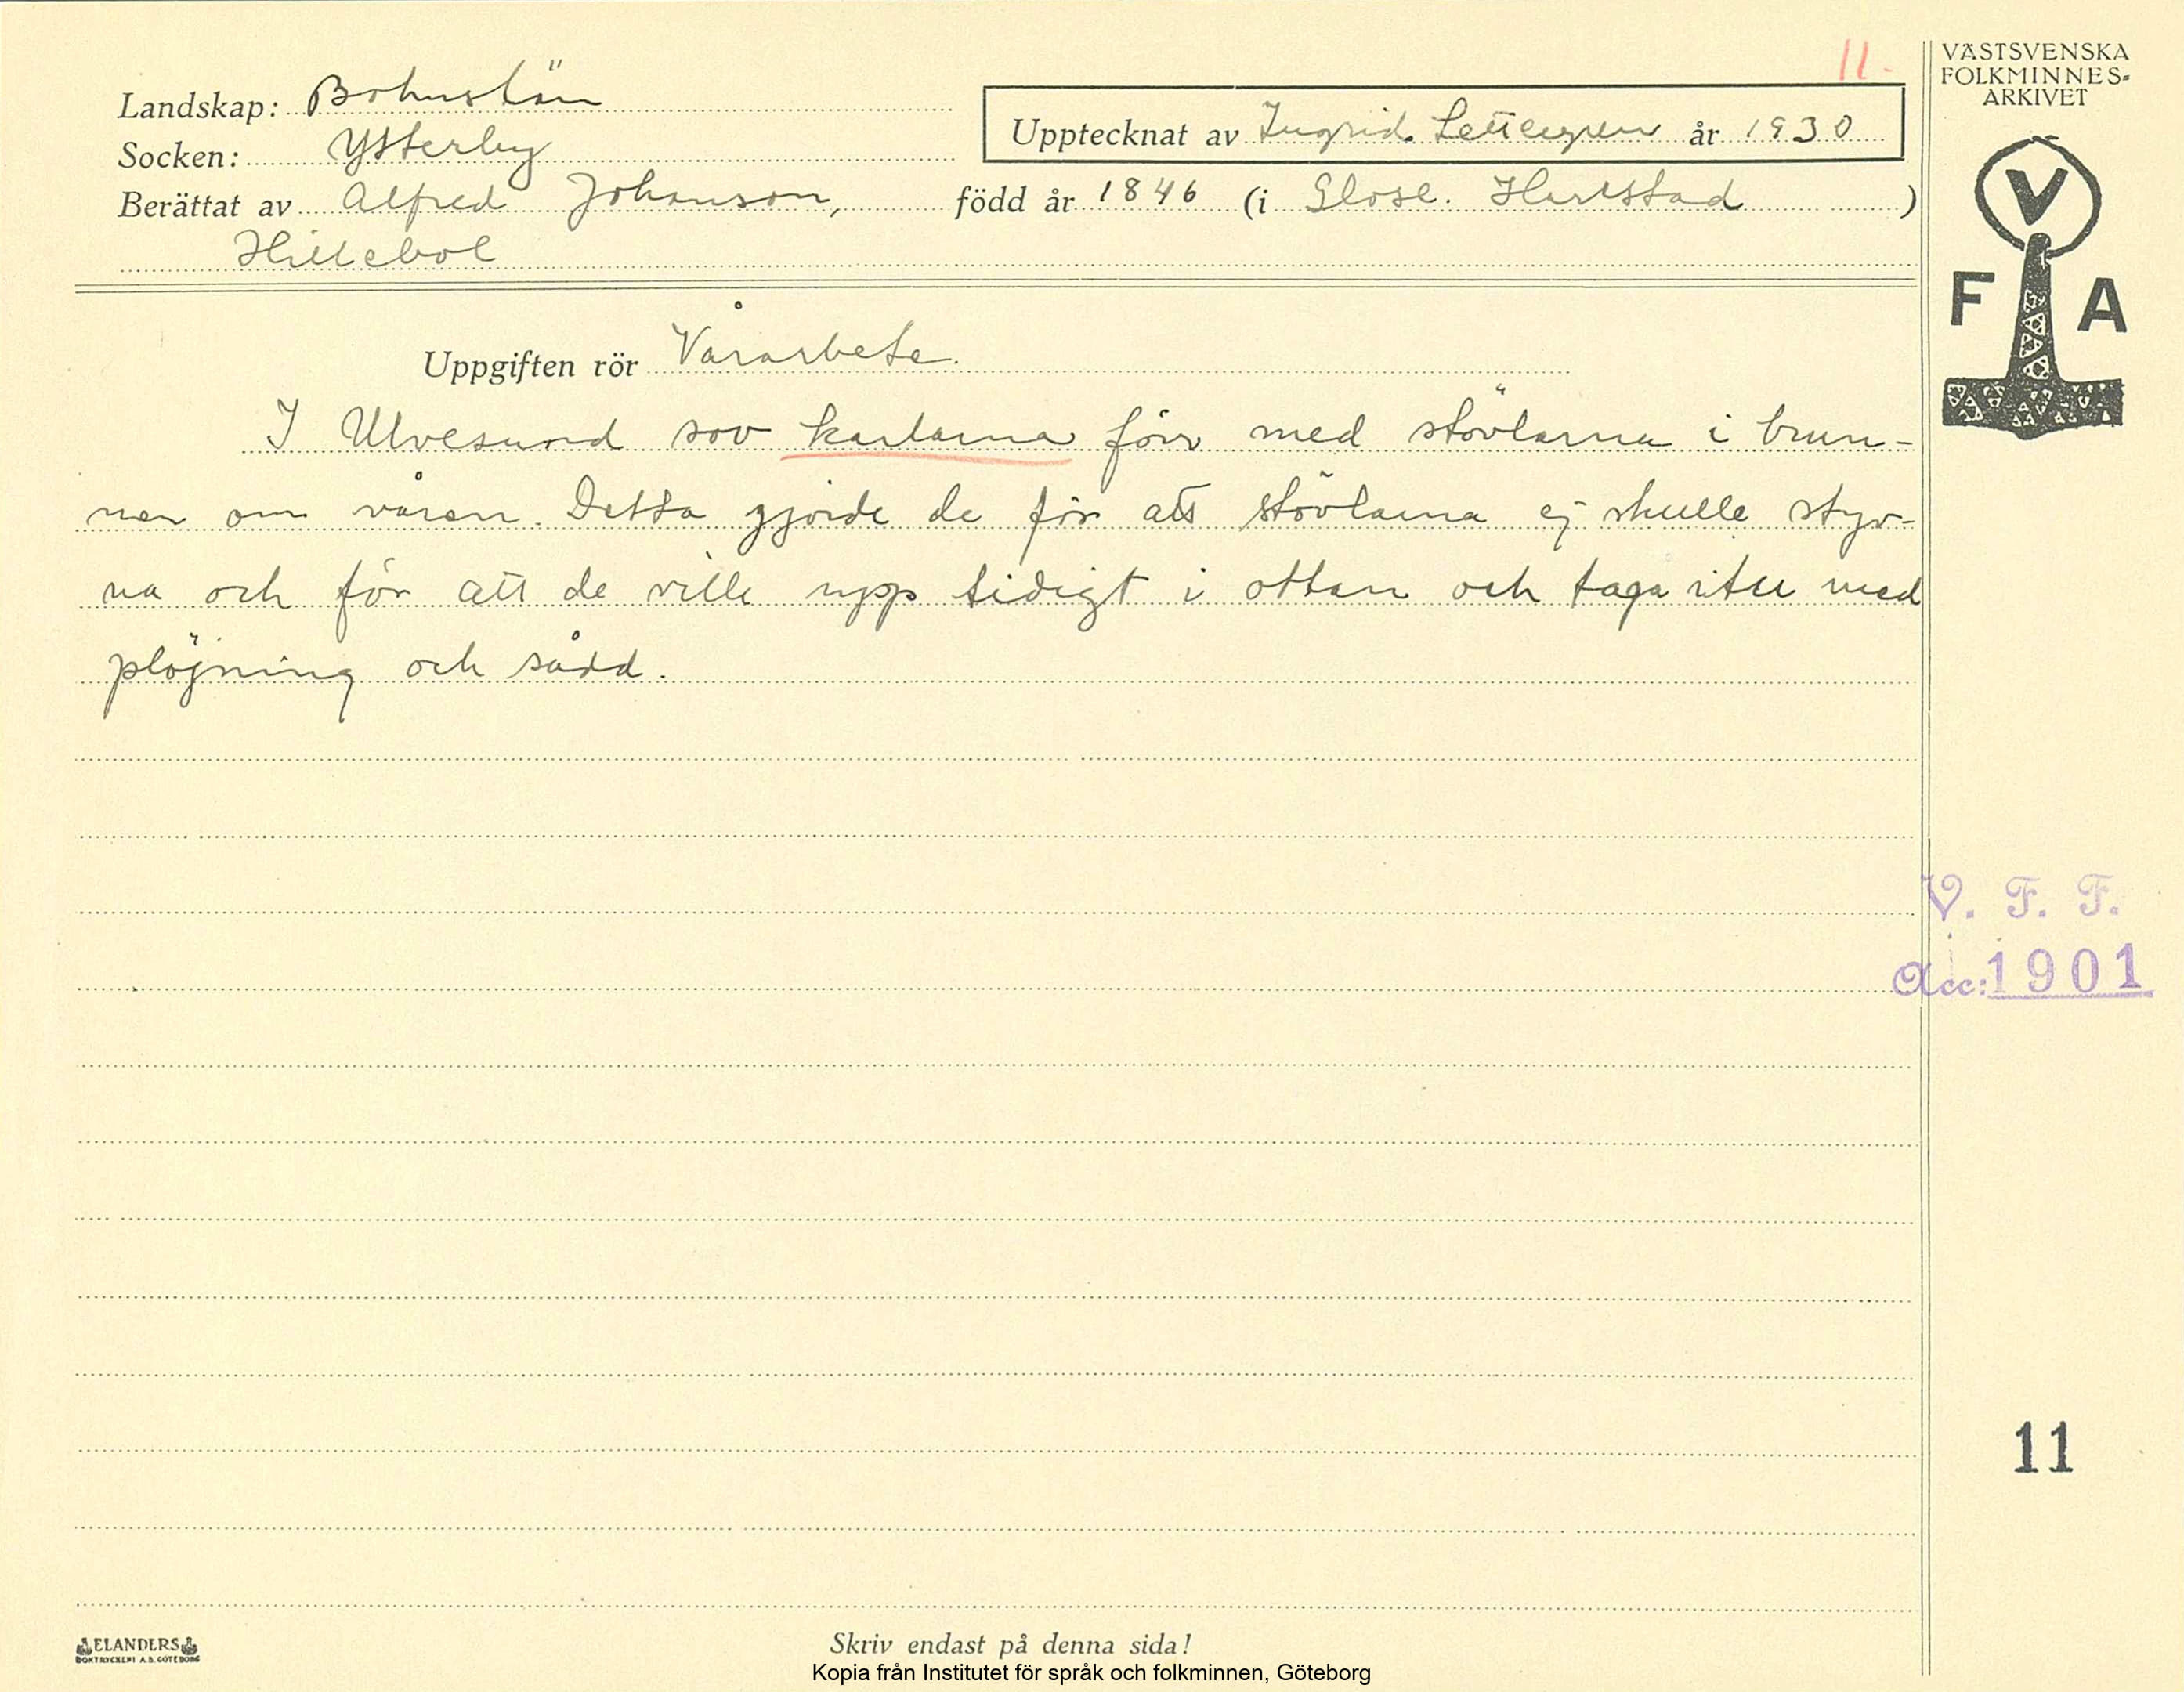 11.
VÄSTSVENSKA
FOLKMINNES-
ARKIVET
V
F A
Landskap: Bohuslän
Upptecknat av Ingrid år 1930
Socken: Ytterby
Berättat av Alfred Johanson, född år 1846 (i Glose. Harestad)
Uppgiften rör Vårarbete.
I Ulvesund sov karlarna förr med stövlarna i brun-
nen om våren. Detta gjorde de för att stövlarna ej skulle styv-
na och för att de ville upp tidigt i ottan och taga itu med
plöjning och sådd.
V. F. F.
Acc: 1901
11
ELANDERS
BOKTRYCKERI A.B. GÖTEBORG
Skriv endast på denna sida!
Kopia från Institutet för språk och folkminnen, Göteborg